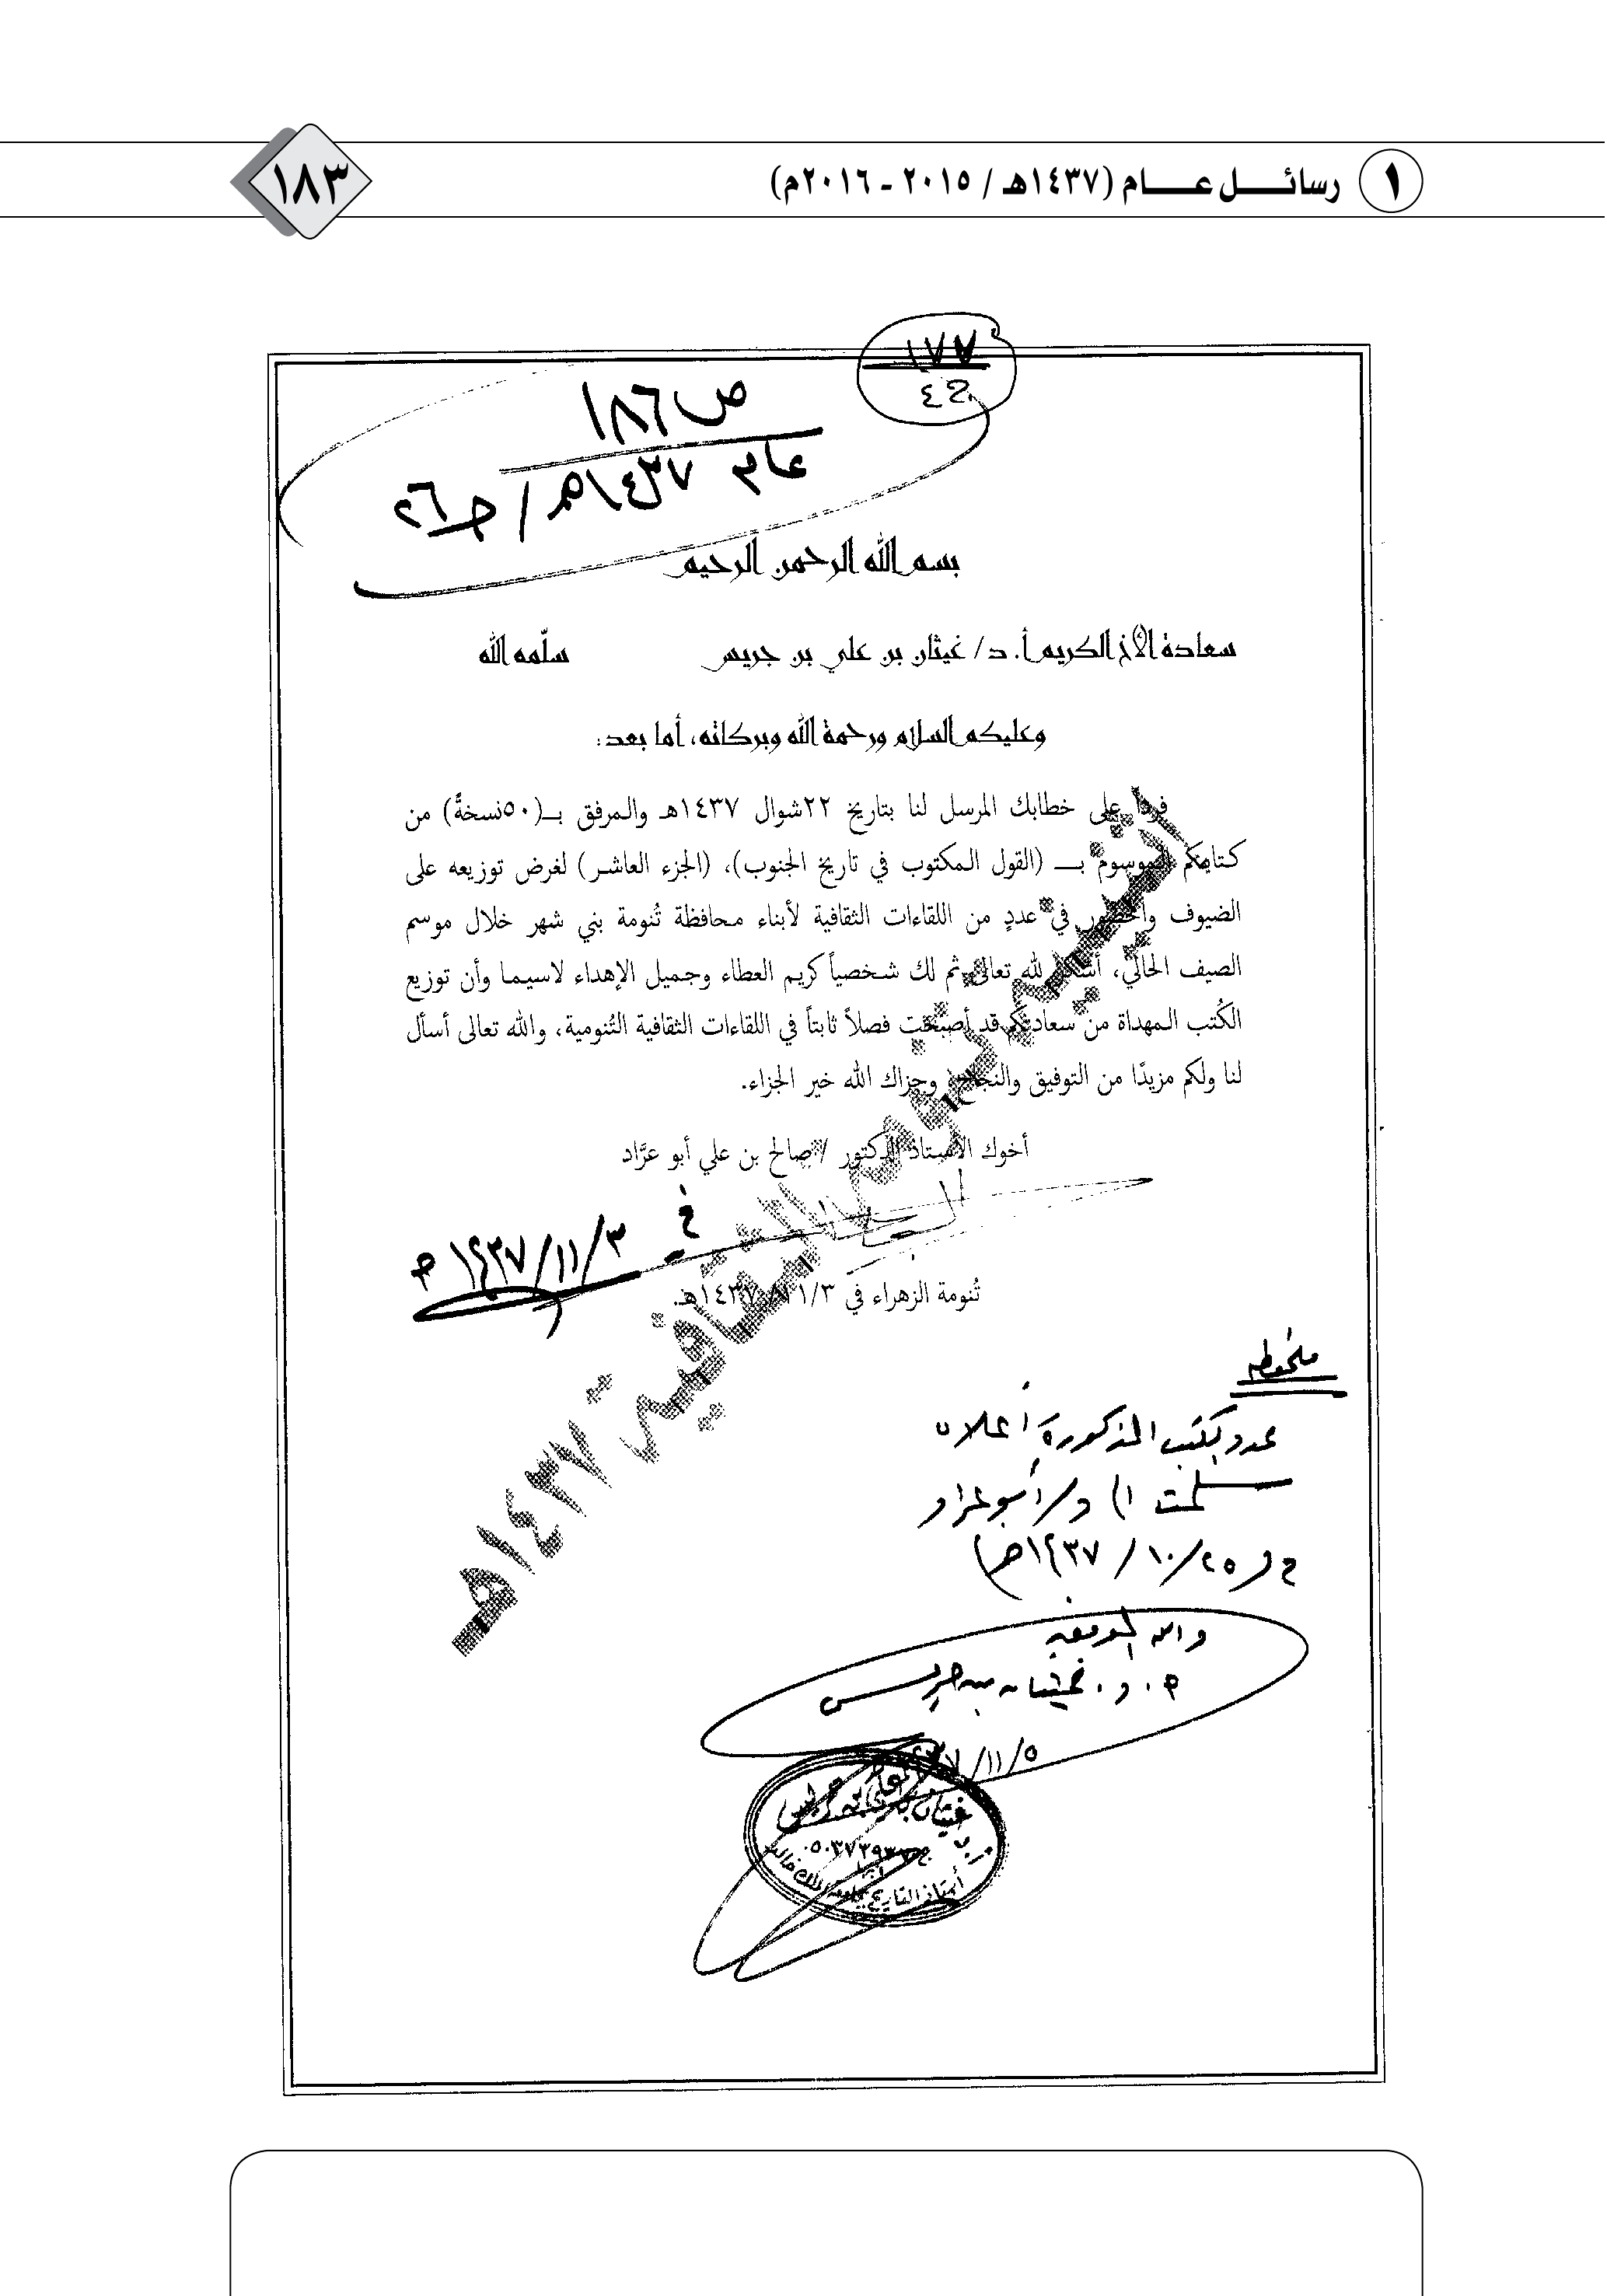 ١ رسائــــل عــــام (١٤٣٧هـ / ٢٠١٥ ـ ٢٠١٦م)
١٨٣
١٧٧
ص ١٨٦
عام ١٤٣٧هـ / جـ٢٦
بسم الله الرحمن الرحيم
سعادة الأخ الكريم أ. د/ غيثان بن علي بن جريس سلّمه الله
وعليكم السلام ورحمة الله وبركاته، أما بعد:
فرداً على خطابك المرسل لنا بتاريخ ٢٢شوال ١٤٣٧هـ والمرفق بـ(٥٠نسخةً) من
كتابكم الموسوم بـــ (القول المكتوب في تاريخ الجنوب)، (الجزء العاشر) لغرض توزيعه على
الضيوف والحضور في عددٍ من اللقاءات الثقافية لأبناء محافظة تُنومة بني شهر خلال موسم
الصيف الحالي، أشكر لله تعالى ثم لك شخصياً كريم العطاء وجميل الإهداء لاسيما وأن توزيع
الكُتب المهداة من سعادتكم قد أصبحت فصلاً ثابتاً في اللقاءات الثقافية التُنومية، والله تعالى أسأل
لنا ولكم مزيدًا من التوفيق والنجاح، وجزاك الله خير الجزاء.
أخوك الأستاذ الدكتور / صالح بن علي أبو عرَّاد
في ٣/١١/١٤٣٧هـ
تُنومة الزهراء في ٣/١١/١٤٣٧هـ.
ملحوظة
عدد الكتب المذكورة أعلاه
سلمت إلى د/ أبو عراد
في ٢٥/١٠/١٤٣٧هـ
والله الموفق
أ.د. غيثان بن جريس
٥/١١/١٤٣٧
أ.د. غيثان بن علي بن جريس
أستاذ التاريخ بجامعة الملك خالد
الثقافية ١٤٣٧هـ